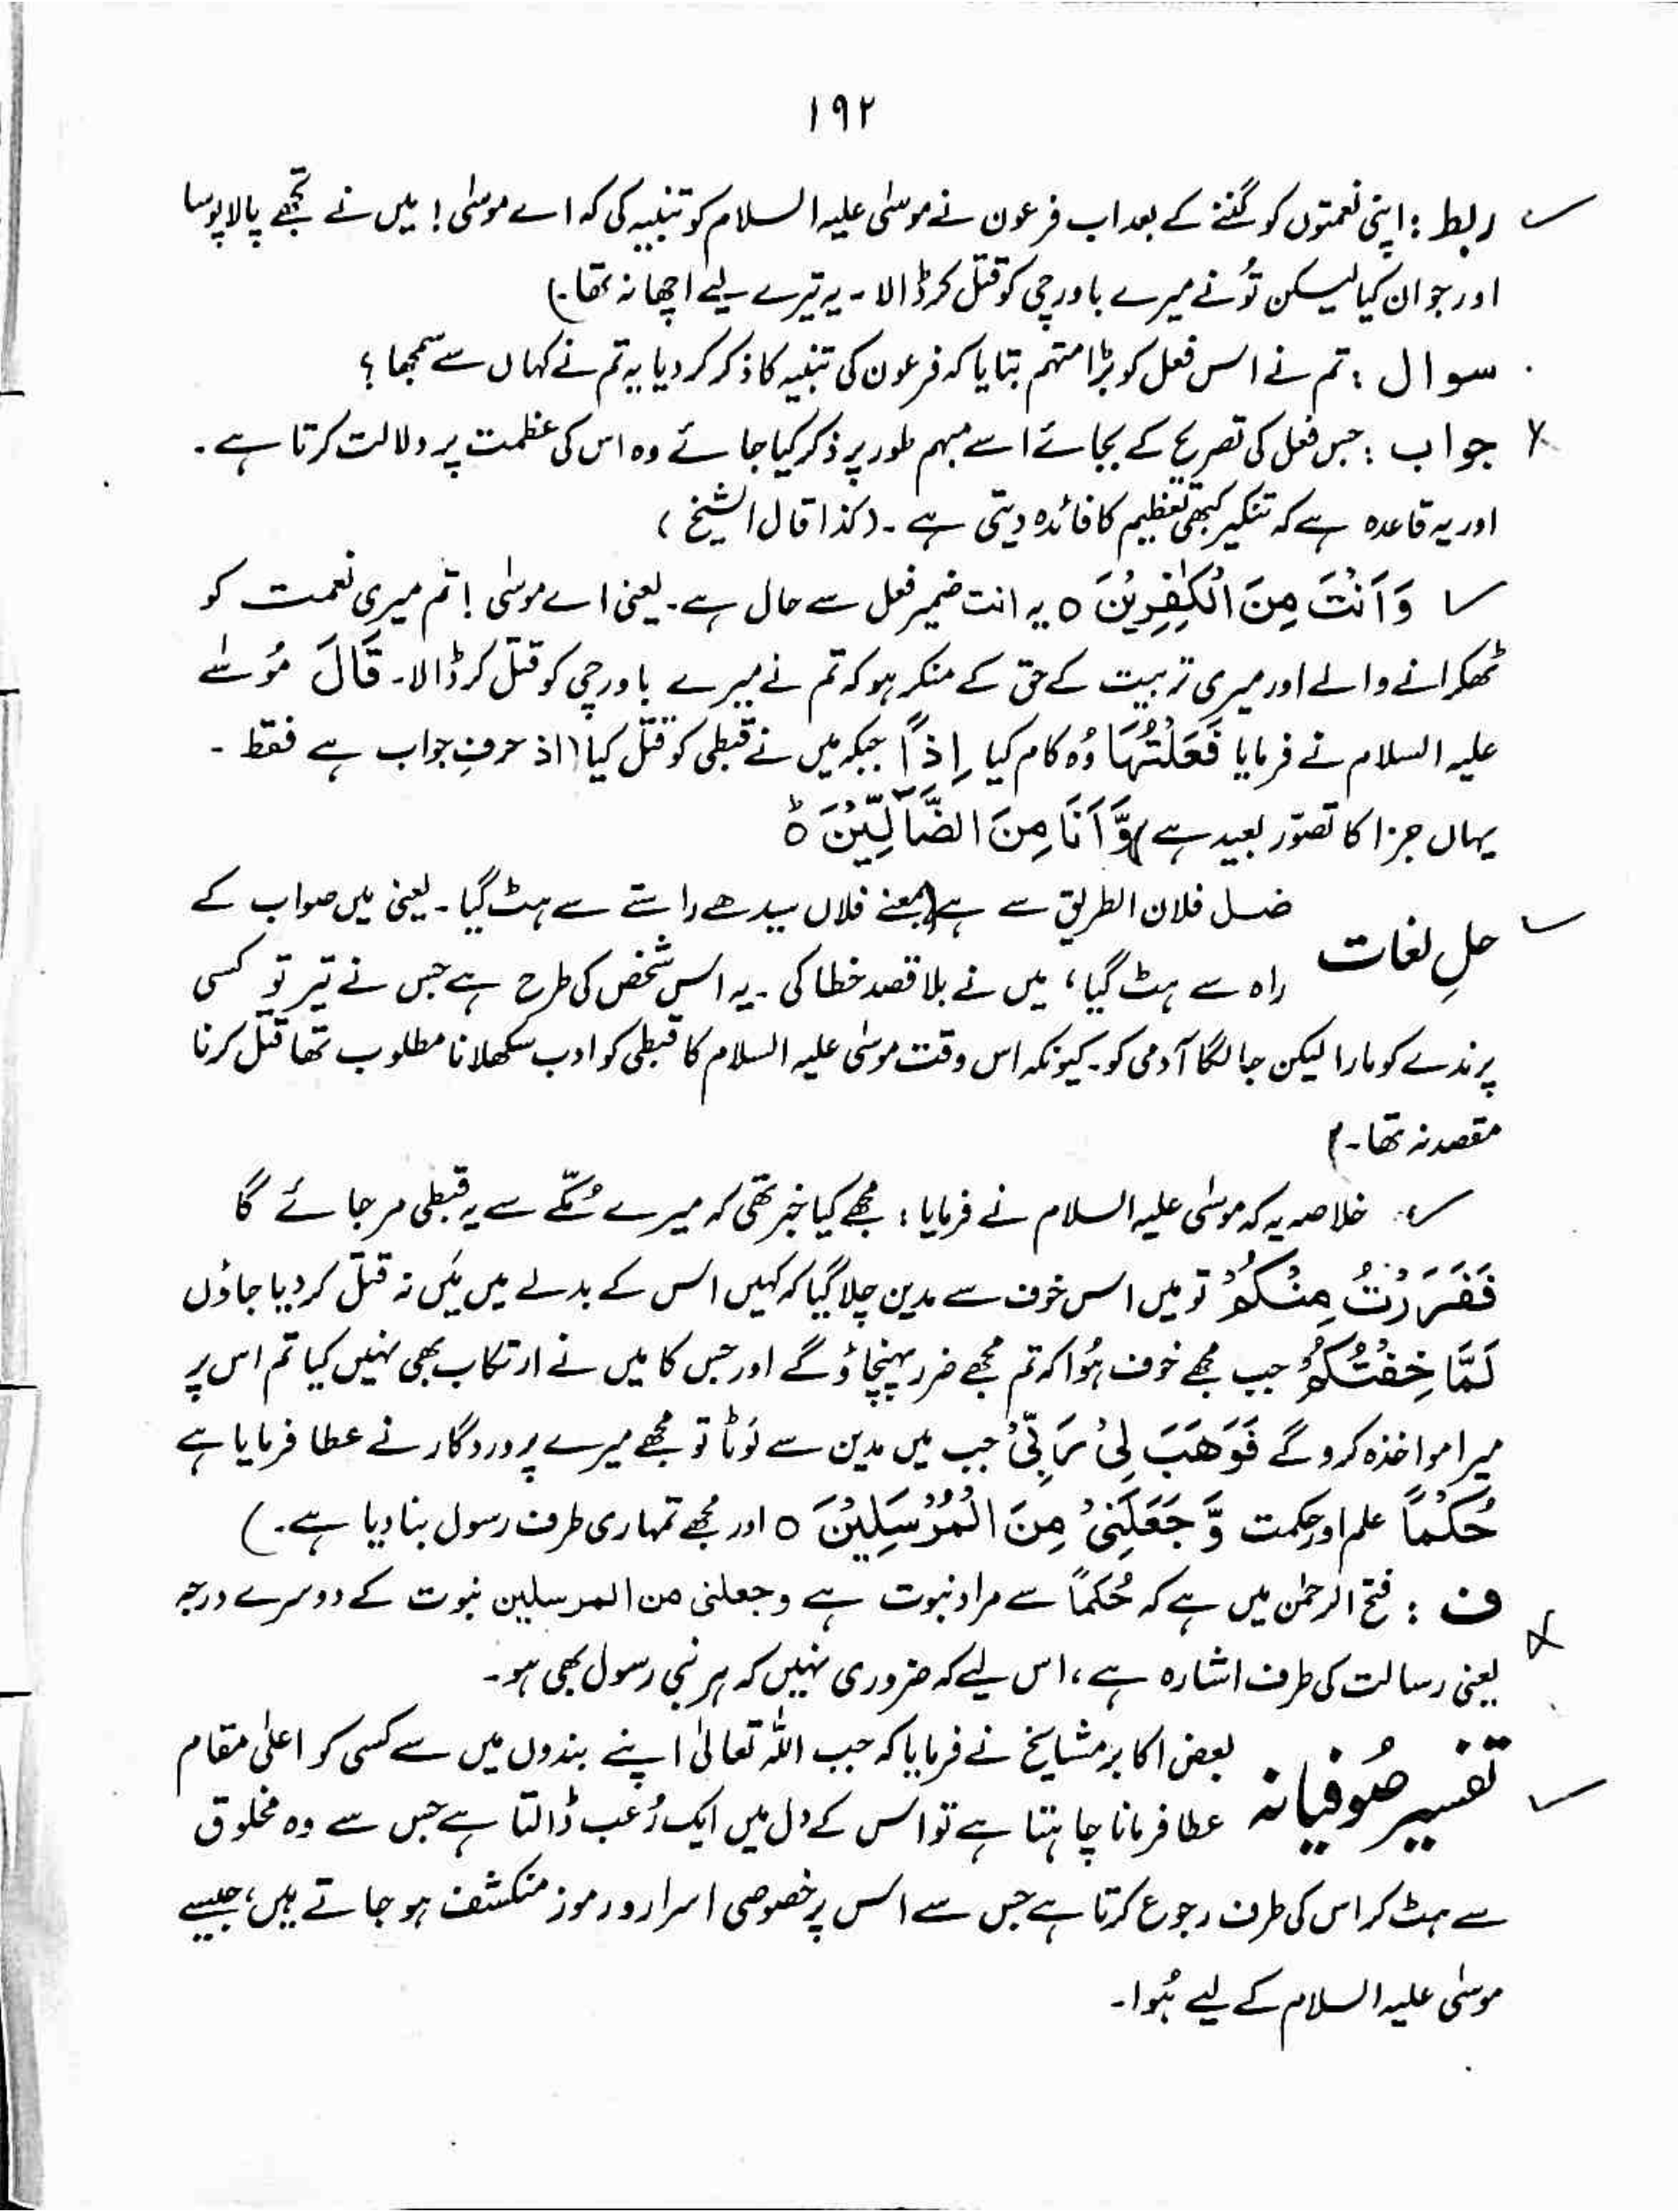 ۱۹۲
ربط : اپنی نعمتوں کو گننے کے بعد اب فرعون نے موسٰی علیہ السلام کو تنبیہ کی کہ اے موسٰی ! میں نے تجھے پالا پوسا
اور جوان کیا لیکن تُو نے میرے باورچی کو قتل کر ڈالا ۔ یہ تیرے لیے اچھا نہ تھا ۔)
سوال : تم نے اس فعل کو بڑا متہم بتایا کہ فرعون کی تنبیہ کا ذکر کر دیا یہ تم نے کہاں سے سمجھا ؟
جواب : جس فعل کی تصریح کے بجائے اسے مبہم طور پر ذکر کیا جائے وہ اس کی عظمت پر دلالت کرتا ہے ۔
اور یہ قاعدہ ہے کہ تنکیر کبھی تعظیم کا فائدہ دیتی ہے ۔ (کذا قال الشیخ )
وَاَنْتَ مِنَ الْكٰفِرِيْنَ ○ یہ انت ضمیر فعل سے حال ہے ۔ یعنی اے موسٰی ! تم میری نعمت کو
ٹھکرانے والے اور میری تربیت کے حق کے منکر ہو کہ تم نے میرے باورچی کو قتل کر ڈالا ۔ قَالَ مُوسٰے
علیہ السلام نے فرمایا فَعَلْتُهَا وُہ کام کیا اِذاً جبکہ میں نے قبطی کو قتل کیا (اذ حرفِ جواب ہے فقط ۔
یہاں جزا کا تصوّر بعید ہے) وَّ اَنَا مِنَ الضَّآلِّيْنَ ○ؕ
حلِ لغات ضل فلان الطریق سے ہے (بمعنے فلاں سیدھے راستے سے ہٹ گیا ۔ یعنی میں صواب کے
راہ سے ہٹ گیا ، میں نے بلا قصد خطا کی ۔ یہ اس شخص کی طرح ہے جس نے تیر تو کسی
پرندے کو مارا لیکن جا لگا آدمی کو ۔ کیونکہ اس وقت موسٰی علیہ السلام کا قبطی کو ادب سکھلانا مطلوب تھا قتل کرنا
مقصد نہ تھا ۔)
خلاصہ یہ کہ موسٰی علیہ السلام نے فرمایا : مجھے کیا خبر تھی کہ میرے مُکّے سے یہ قبطی مر جائے گا
فَفَرَرْتُ مِنْكُمْ تو میں اس خوف سے مدین چلا گیا کہ کہیں اس کے بدلے میں مَیں نہ قتل کر دیا جاؤں
لَمَّا خِفْتُكُمْ جب مجھے خوف ہُوا کہ تم مجھے ضرر پہنچاؤ گے اور جس کا میں نے ارتکاب بھی نہیں کیا تم اس پر
میرا مواخذہ کرو گے فَوَهَبَ لِىْ رَبِّىْ جب میں مدین سے لَوٹا تو مجھے میرے پروردگار نے عطا فرمایا ہے
حُكْمًا علم اور حکمت وَّ جَعَلَنِىْ مِنَ الْمُرْسَلِيْنَ ○ اور مجھے تمہاری طرف رسول بنا دیا ہے ۔)
ف : فتح الرحمٰن میں ہے کہ حُکمًا سے مراد نبوت ہے وجعلنی من المرسلین نبوت کے دوسرے درجہ
یعنی رسالت کی طرف اشارہ ہے ، اس لیے کہ ضروری نہیں کہ ہر نبی رسول بھی ہو ۔
تفسیر صُوفیانہ بعض اکابر مشایخ نے فرمایا کہ جب اللہ تعالٰی اپنے بندوں میں سے کسی کو اعلٰی مقام
عطا فرمانا چاہتا ہے تو اس کے دل میں ایک رُعب ڈالتا ہے جس سے وہ مخلوق
سے ہٹ کر اس کی طرف رجوع کرتا ہے جس سے اس پر خصوصی اسرار و رموز منکشف ہو جاتے ہیں ، جیسے
موسٰی علیہ السلام کے لیے ہُوا ۔